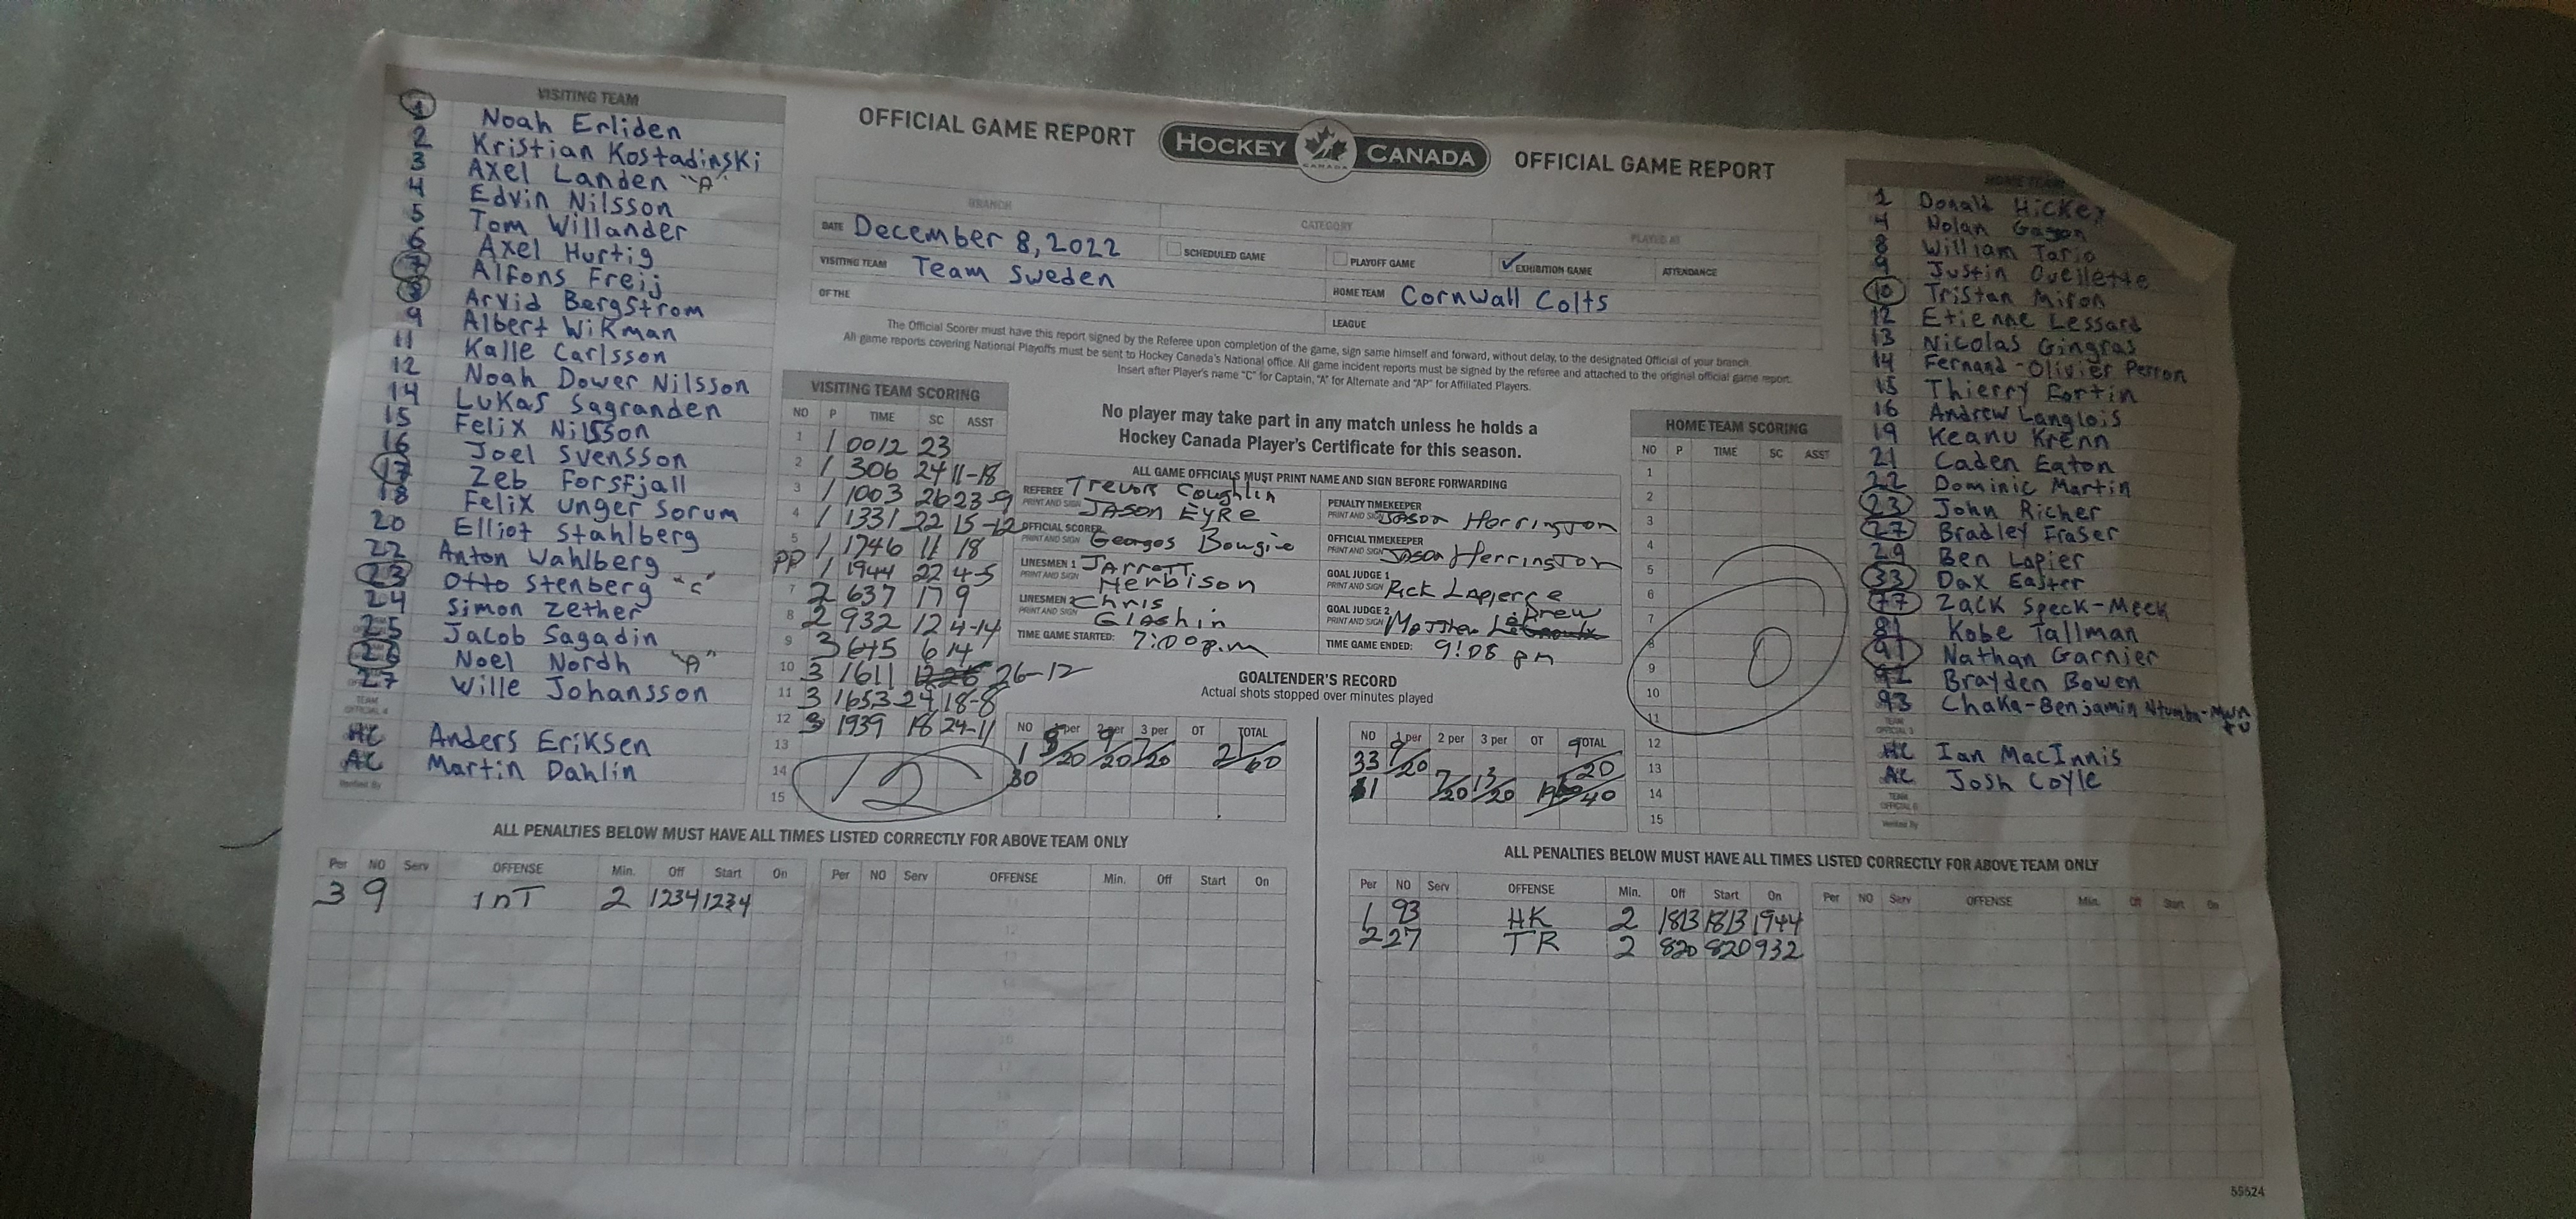 VISITING TEAM
1 Noah Erliden
2 Kristian Kostadinski
3 Axel Landen "A"
4 Edvin Nilsson
5 Tom Willander
6 Axel Hurtig
7 Alfons Freij
8 Arvid Bergstrom
9 Albert Wikman
11 Kalle Carlsson
12 Noah Dower Nilsson
14 Lukas Sagranden
15 Felix Nilsson
16 Joel Svensson
17 Zeb Forsfjall
18 Felix Unger Sorum
20 Elliot Stahlberg
22 Anton Wahlberg
23 Otto Stenberg "C"
24 Simon Zether
25 Jacob Sagadin
26 Noel Nordh "A"
27 Wille Johansson
HC Anders Eriksen
AC Martin Dahlin
OFFICIAL GAME REPORT HOCKEY CANADA OFFICIAL GAME REPORT
BRANCH CATEGORY PLAYED AT
DATE December 8, 2022 SCHEDULED GAME PLAYOFF GAME EXHIBITION GAME ATTENDANCE
VISITING TEAM Team Sweden HOME TEAM Cornwall Colts
OF THE LEAGUE
The Official Scorer must have this report signed by the Referee upon completion of the game, sign same himself and forward, without delay, to the designated Official of your branch.
All game reports covering National Playoffs must be sent to Hockey Canada's National office. All game incident reports must be signed by the referee and attached to the original official game report.
Insert after Player's name "C" for Captain, "A" for Alternate and "AP" for Affiliated Players.
VISITING TEAM SCORING
NO P TIME SC ASST
1 1 0012 23
2 1 306 24 11-18
3 1 1003 26 23-9
4 1 1331 22 15-12
5 1 1746 11 18
PP 1 1944 22 4-5
7 2 637 17 9
8 2 932 12 4-14
9 3 645 6 14
10 3 1611 26-12
11 3 1653 24 18-8
12 3 1939 18 24-11
13
14
15
12
No player may take part in any match unless he holds a
Hockey Canada Player's Certificate for this season.
ALL GAME OFFICIALS MUST PRINT NAME AND SIGN BEFORE FORWARDING
REFEREE PRINT AND SIGN Trevor Coughlin
Jason Eyre
OFFICIAL SCORER PRINT AND SIGN Georges Bougie
LINESMEN 1 PRINT AND SIGN Jarrett
Herbison
LINESMEN 2 PRINT AND SIGN Chris
Glashin
TIME GAME STARTED: 7:00 p.m
PENALTY TIMEKEEPER
PRINT AND SIGN Jason Herrington
OFFICIAL TIMEKEEPER
PRINT AND SIGN Jason Herrington
GOAL JUDGE 1
PRINT AND SIGN Rick Lapierre
GOAL JUDGE 2
PRINT AND SIGN Matthew Drew
TIME GAME ENDED: 9:08 pm
GOALTENDER'S RECORD
Actual shots stopped over minutes played
NO 1 per 2 per 3 per OT TOTAL
1 /20 9/20 7/20 21/60
30
NO 1 per 2 per 3 per OT TOTAL
33 9/20 9/20
7/20 13/20 /40
HOME TEAM SCORING
NO P TIME SC ASST
1
2
3
4
5
6
7
8
9
10
11
12
13
14
15
0
HOME TEAM
2 Donald Hickey
4 Nolan Gagon
8 William Tario
9 Justin Ouellette
10 Tristan Miron
12 Etienne Lessard
13 Nicolas Gingras
14 Fernand-Olivier Perron
15 Thierry Fortin
16 Andrew Langlois
19 Keanu Krenn
21 Caden Eaton
22 Dominic Martin
23 John Richer
27 Bradley Fraser
29 Ben Lapier
33 Dax Easter
77 Zack Speck-Meek
81 Kobe Tallman
91 Nathan Garnier
92 Brayden Bowen
93 Chaka-Benjamin
HC Ian MacInnis
AC Josh Coyle
ALL PENALTIES BELOW MUST HAVE ALL TIMES LISTED CORRECTLY FOR ABOVE TEAM ONLY
Per NO Serv OFFENSE Min. Off Start On Per NO Serv OFFENSE Min. Off Start On
3 9 INT 2 1234 1234
ALL PENALTIES BELOW MUST HAVE ALL TIMES LISTED CORRECTLY FOR ABOVE TEAM ONLY
Per NO Serv OFFENSE Min. Off Start On Per NO Serv OFFENSE Min. Off Start On
1 93 HK 2 1813 1813 1944
2 27 TR 2 820 820 932
55524